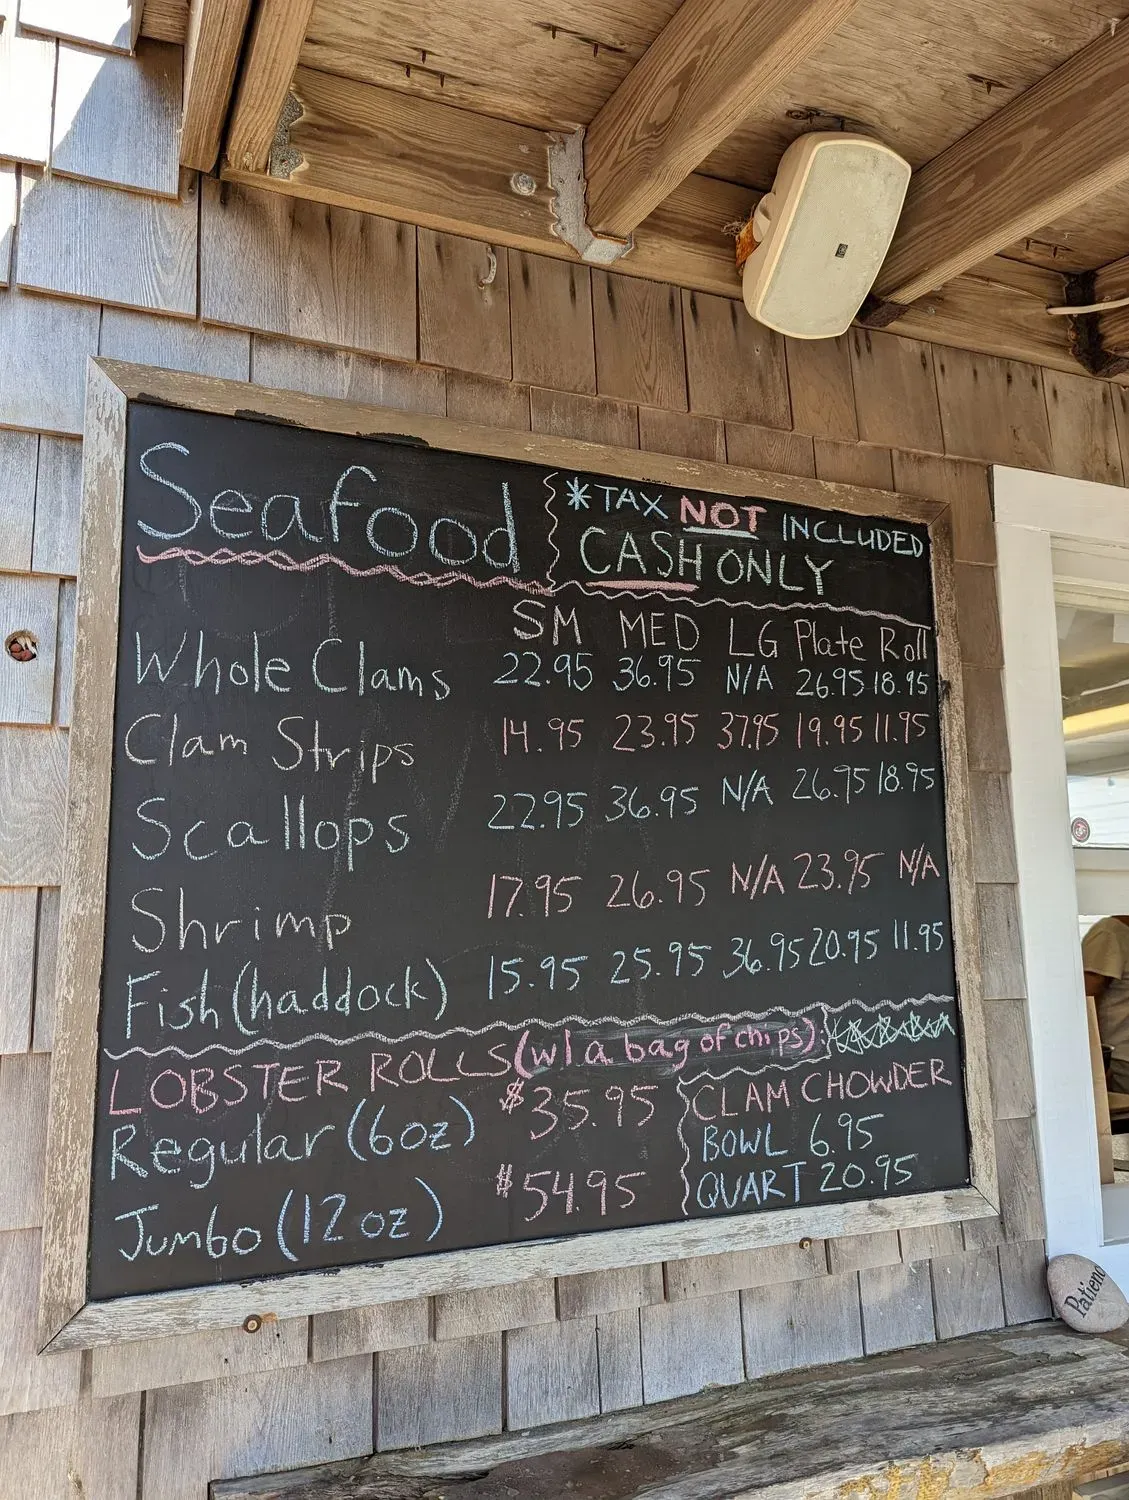 Seafood
*TAX NOT INCLUDED
CASH ONLY
SM MED LG Plate Roll
Whole Clams 22.95 36.95 N/A 26.95 18.95
Clam Strips 14.95 23.95 37.95 19.95 11.95
Scallops 22.95 36.95 N/A 26.95 18.95
Shrimp 17.95 26.95 N/A 23.95 N/A
Fish (haddock) 15.95 25.95 36.95 20.95 11.95
LOBSTER ROLLS (w/ a bag of chips):
Regular (6oz) $35.95
Jumbo (12 oz) $54.95
CLAM CHOWDER
BOWL 6.95
QUART 20.95